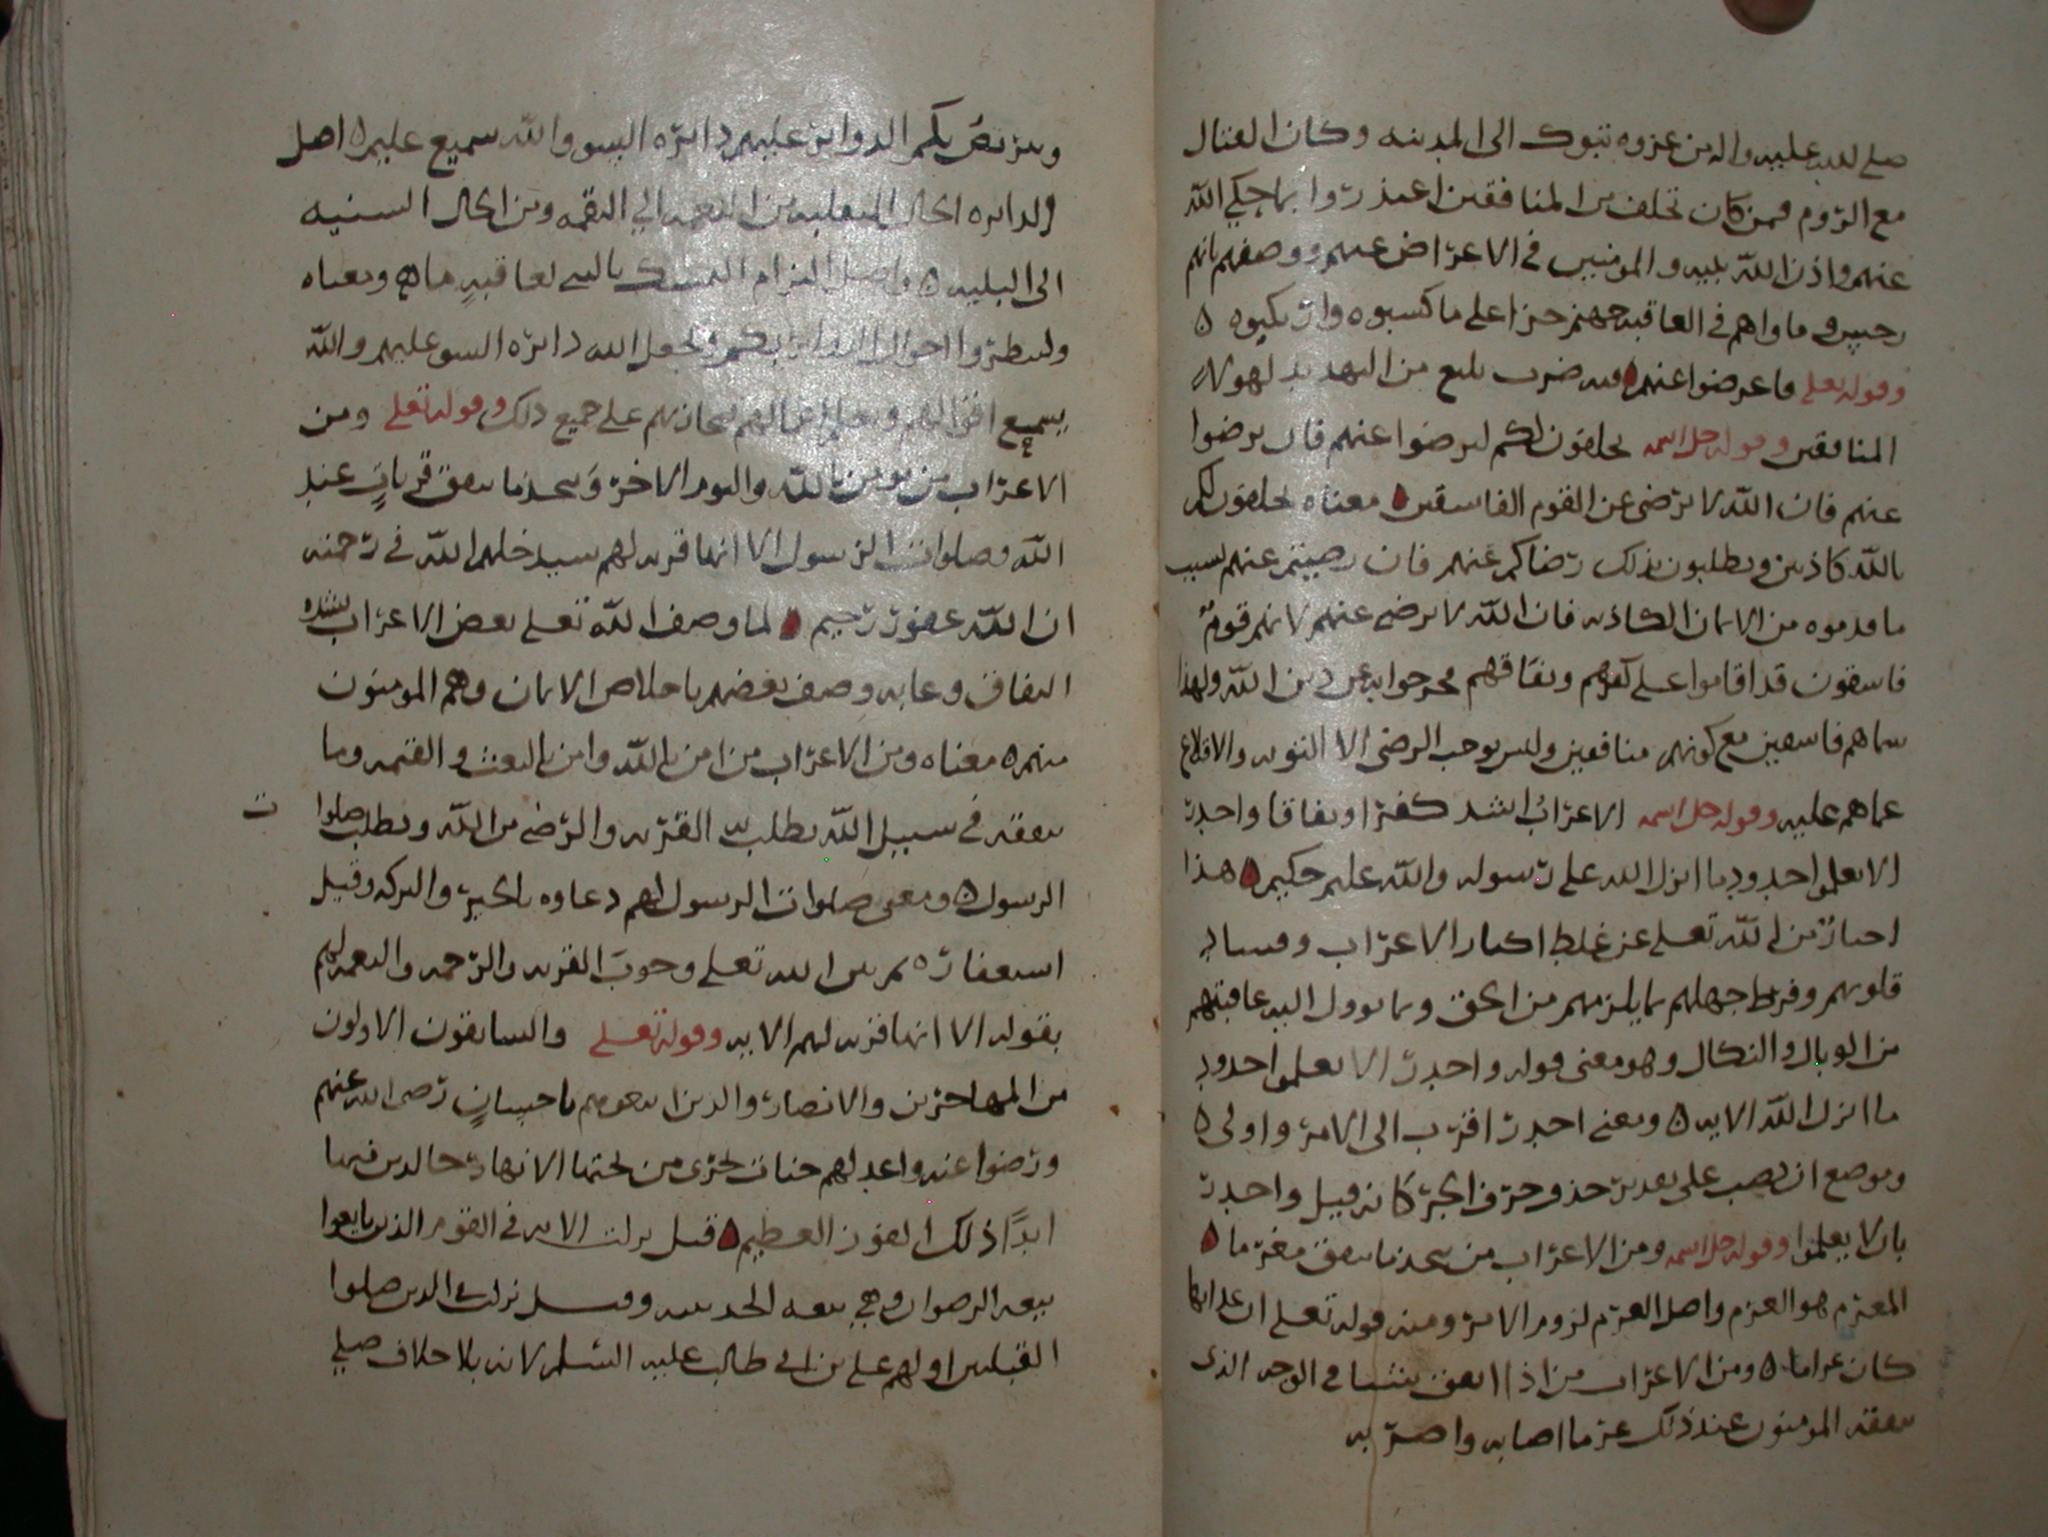 صلى الله عليه واله من غزوه تبوك الى المدينه وكان القتال
مع الروم فمن كان تخلف من المنافقين اعتذروا بما حكي الله
عنهم واذن الله لنبيه والمومنين في الاعراض عنهم ووصفهم بانهم
رجس وماواهم في العاقبه جهنم جزا على ما كسبوه وارتكبوه
وقوله تعلى فاعرضوا عنهم فيه ضرب بليغ من التهديد لهولاء
المنافقين وقوله جل اسمه يحلفون لكم لترضوا عنهم فان ترضوا
عنهم فان الله لا يرضى عن القوم الفاسقين معناه يحلفون لكم
بالله كاذبين ويطلبون بذلك رضاكم عنهم فان رضيتم عنهم لسبب
ما قدموه من الايمان الكاذبه فان الله لا يرضى عنهم لانهم قوم
فاسقون قد اقاموا على كفرهم ونفاقهم فخرجوا به عن دين الله ولهذا
سماهم فاسقين مع كونهم منافقين وليس يوجب الرضى الا التوبه والاقلاع
عماهم عليه وقوله جل اسمه الاعراب اشد كفرا ونفاقا واجدر
الا يعلموا حدود ما انزل الله على رسوله والله عليم حكيم هذا
اخبار من الله تعلى عن غلظ اكباد الاعراب وقساوه
قلوبهم وفرط جهلهم بما يلزمهم من الحق وما توول اليه عاقبتهم
من الوبال والنكال وهو معنى قوله واجدر الا يعلموا حدود
ما انزل الله الايه ومعنى اجدر اقرب الى الامر واولى
وموضع ان نصب على تقدير حذف حرف الجر كانه قيل واجدر
بان لا يعلموا وقوله جل اسمه ومن الاعراب من يتخذ ما ينفق مغرما
المغرم هو الغرم واصل الغرم لزوم الامر ومنه قوله تعلى ان عذابها
كان غراما ومن الاعراب من اذا انفق شيا في الوجه الذى
ينفقه المومنون عند ذلك غرما اصابه واضر به
ويتربص بكم الدواير عليهم دائره السو والله سميع عليم اصل
الدايره الحال المنقلبه من النعمه الي النقمه ومن الحال السنيه
الى البليه واصل التزام التمسك بالشي لعاقبه ما ومعناه
وينتظروا احوال الدوائر بكم ويجعل الله دائره السو عليهم والله
يسمع اقوالهم ويعلم اعمالهم يجازيهم على جميع ذلك وقوله تعلى ومن
الاعراب من يومن بالله واليوم الاخر ويتخذ ما ينفق قربات عند
الله وصلوات الرسول الا انها قربه لهم سيدخلهم الله في رحمته
ان الله غفور رحيم لما وصف الله تعلى بعض الاعراب بشده
النفاق وعابه وصف بعضهم باخلاص الايمان وهم المومنون
منهم معناه ومن الاعراب من امن بالله وامن بالبعث والقيمه وما
ينفقه في سبيل الله يطلب به القربه والرضى من الله ويطلب صلوا
ت
الرسول ومعنى صلوات الرسول لهم دعاوه بالخير والبركه وقيل
استغفاره ثم بين الله تعلى وجوب القربه والرحمه والنعمه لهم
بقوله الا انها قربه لهم الايه وقوله تعلى والسابقون الاولون
من المهاجرين والانصار والذين اتبعوهم باحسان رضى الله عنهم
ورضوا عنه واعد لهم جنات تجرى من تحتها الانهار خالدين فيها
ابدا ذلك الفوز العظيم قيل نزلت الايه في القوم الذين بايعوا
بيعه الرضوان وهي بيعه الحديبيه وقيل نزلت في الذين صلوا
القبلتين اولهم علي بن ابي طالب عليه السلم لانه بلا خلاف صلي